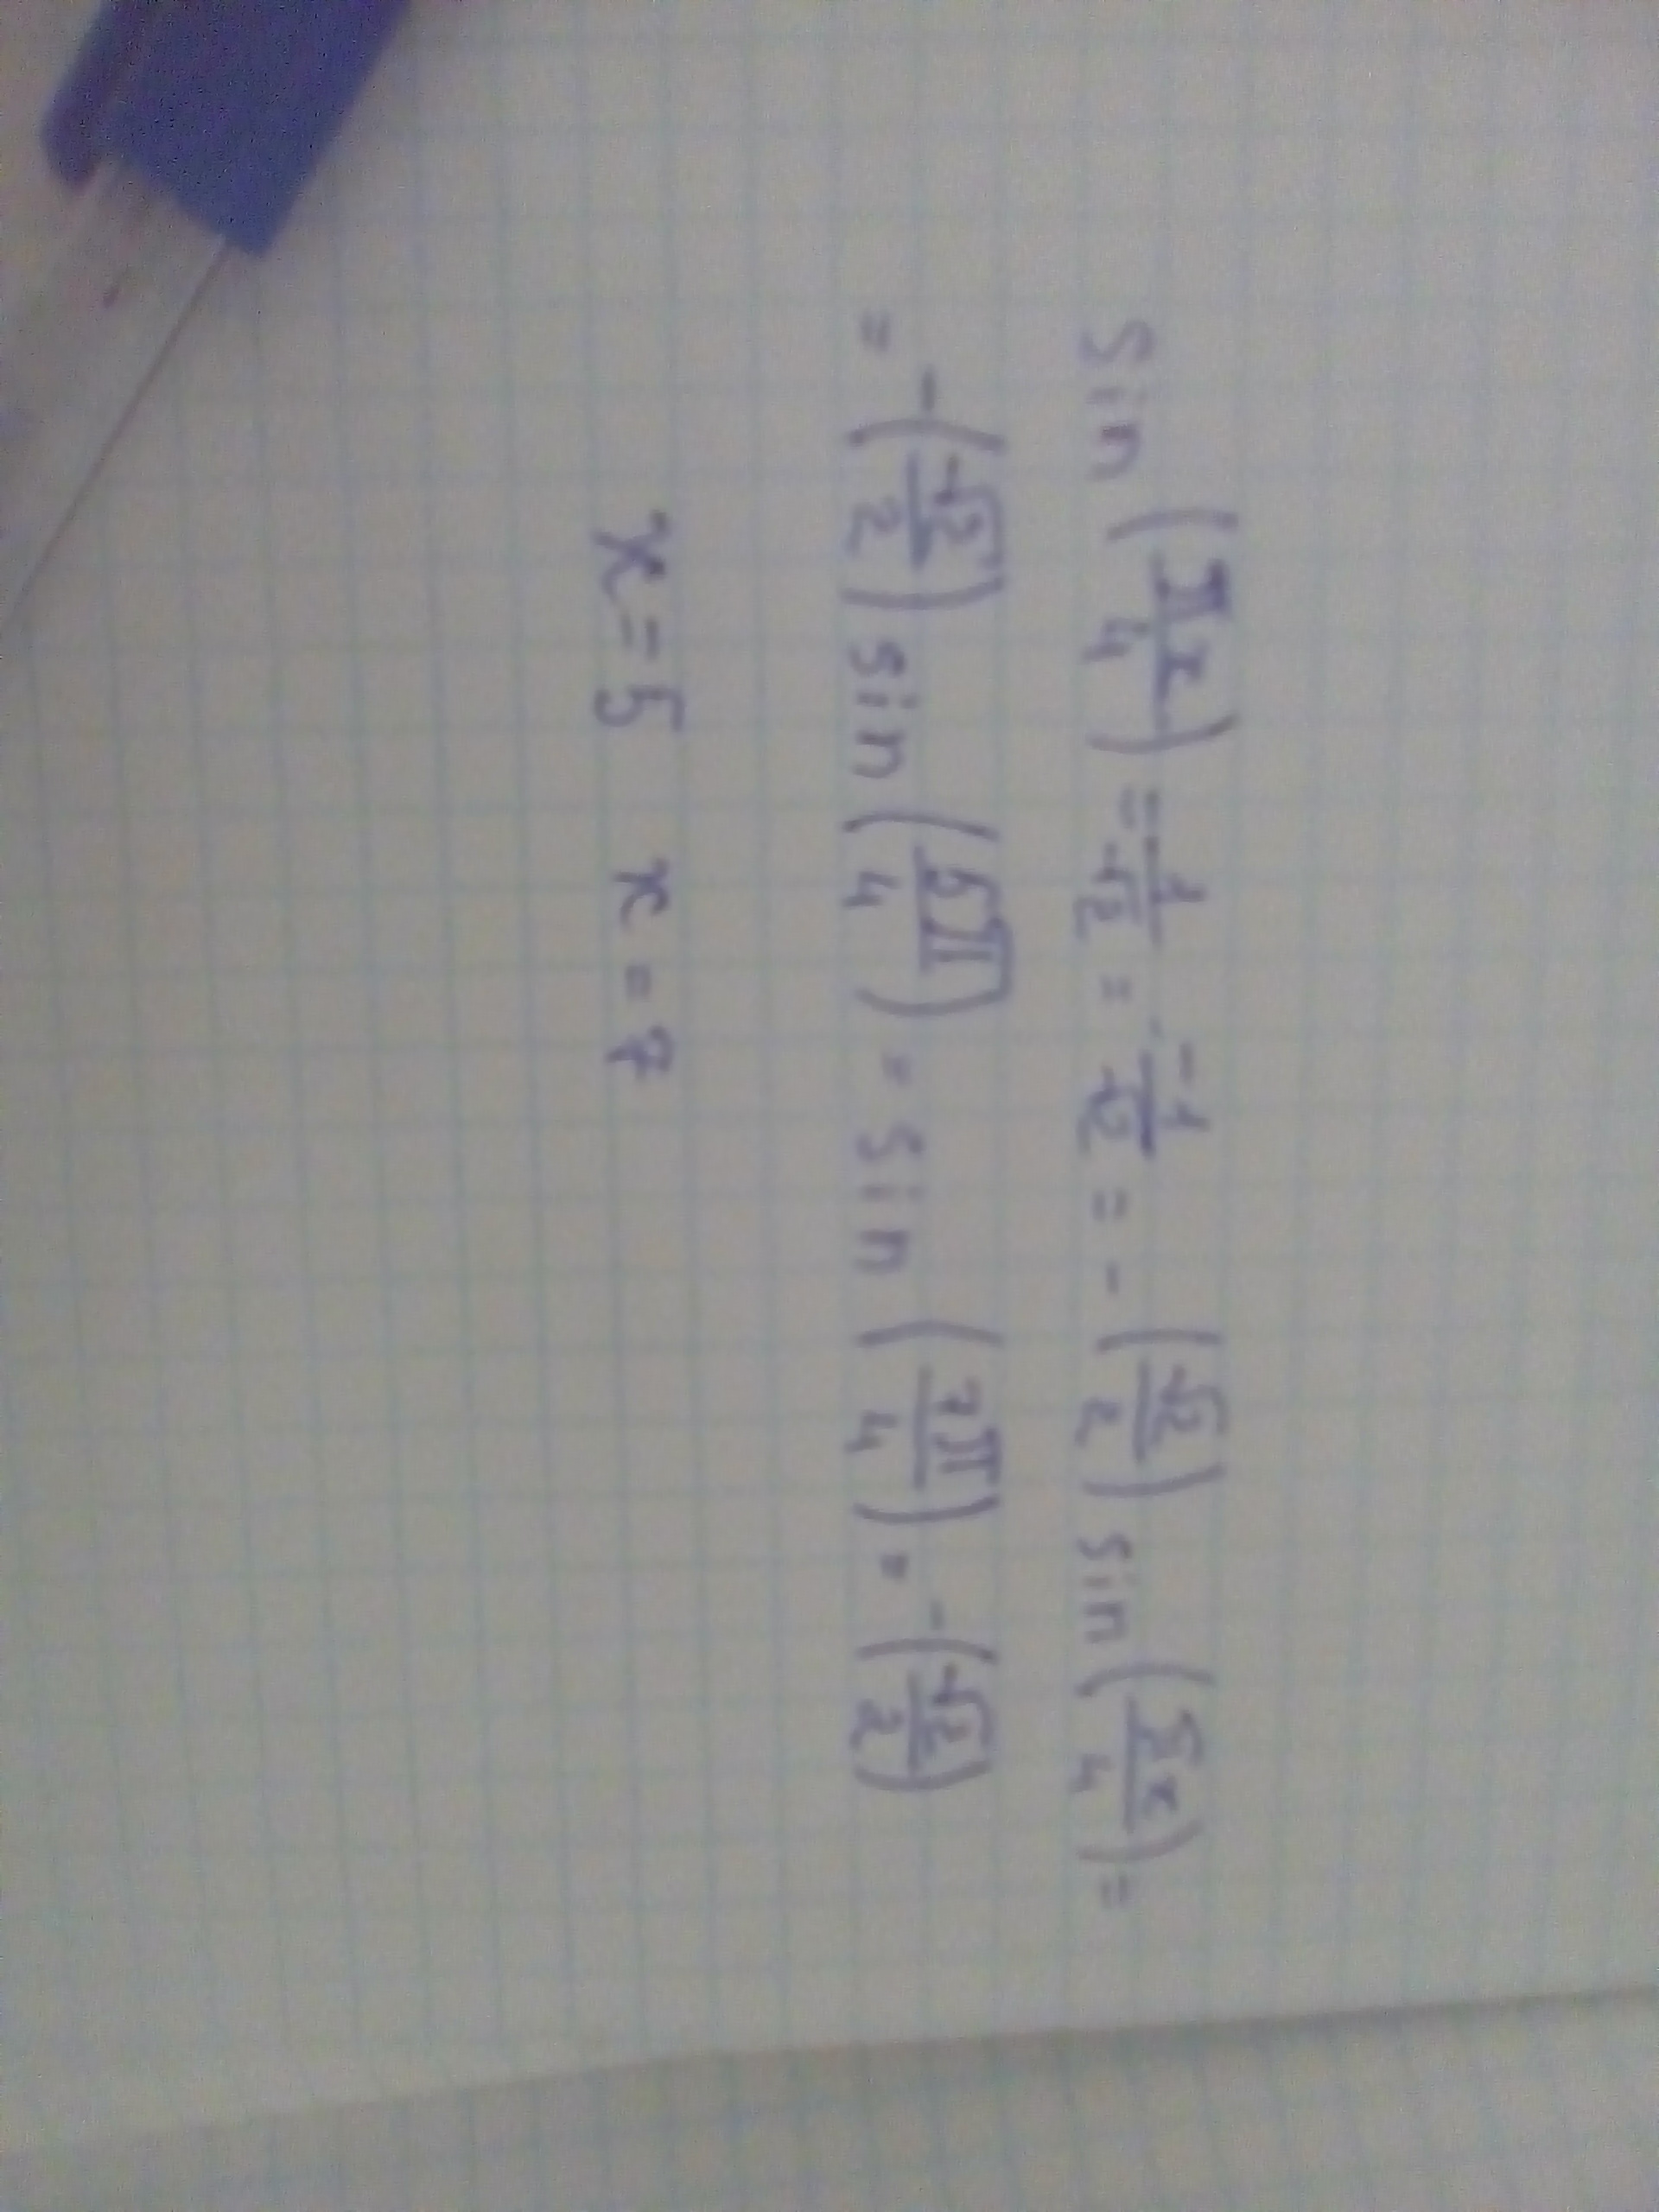 sin (πx/4) = -1/√2 = -1/√2 = - (√2/2) sin (5x/4) =
= - (√2/2) sin (5π/4) = sin (7π/4) = - (√2/2)
x = 5 x = 7